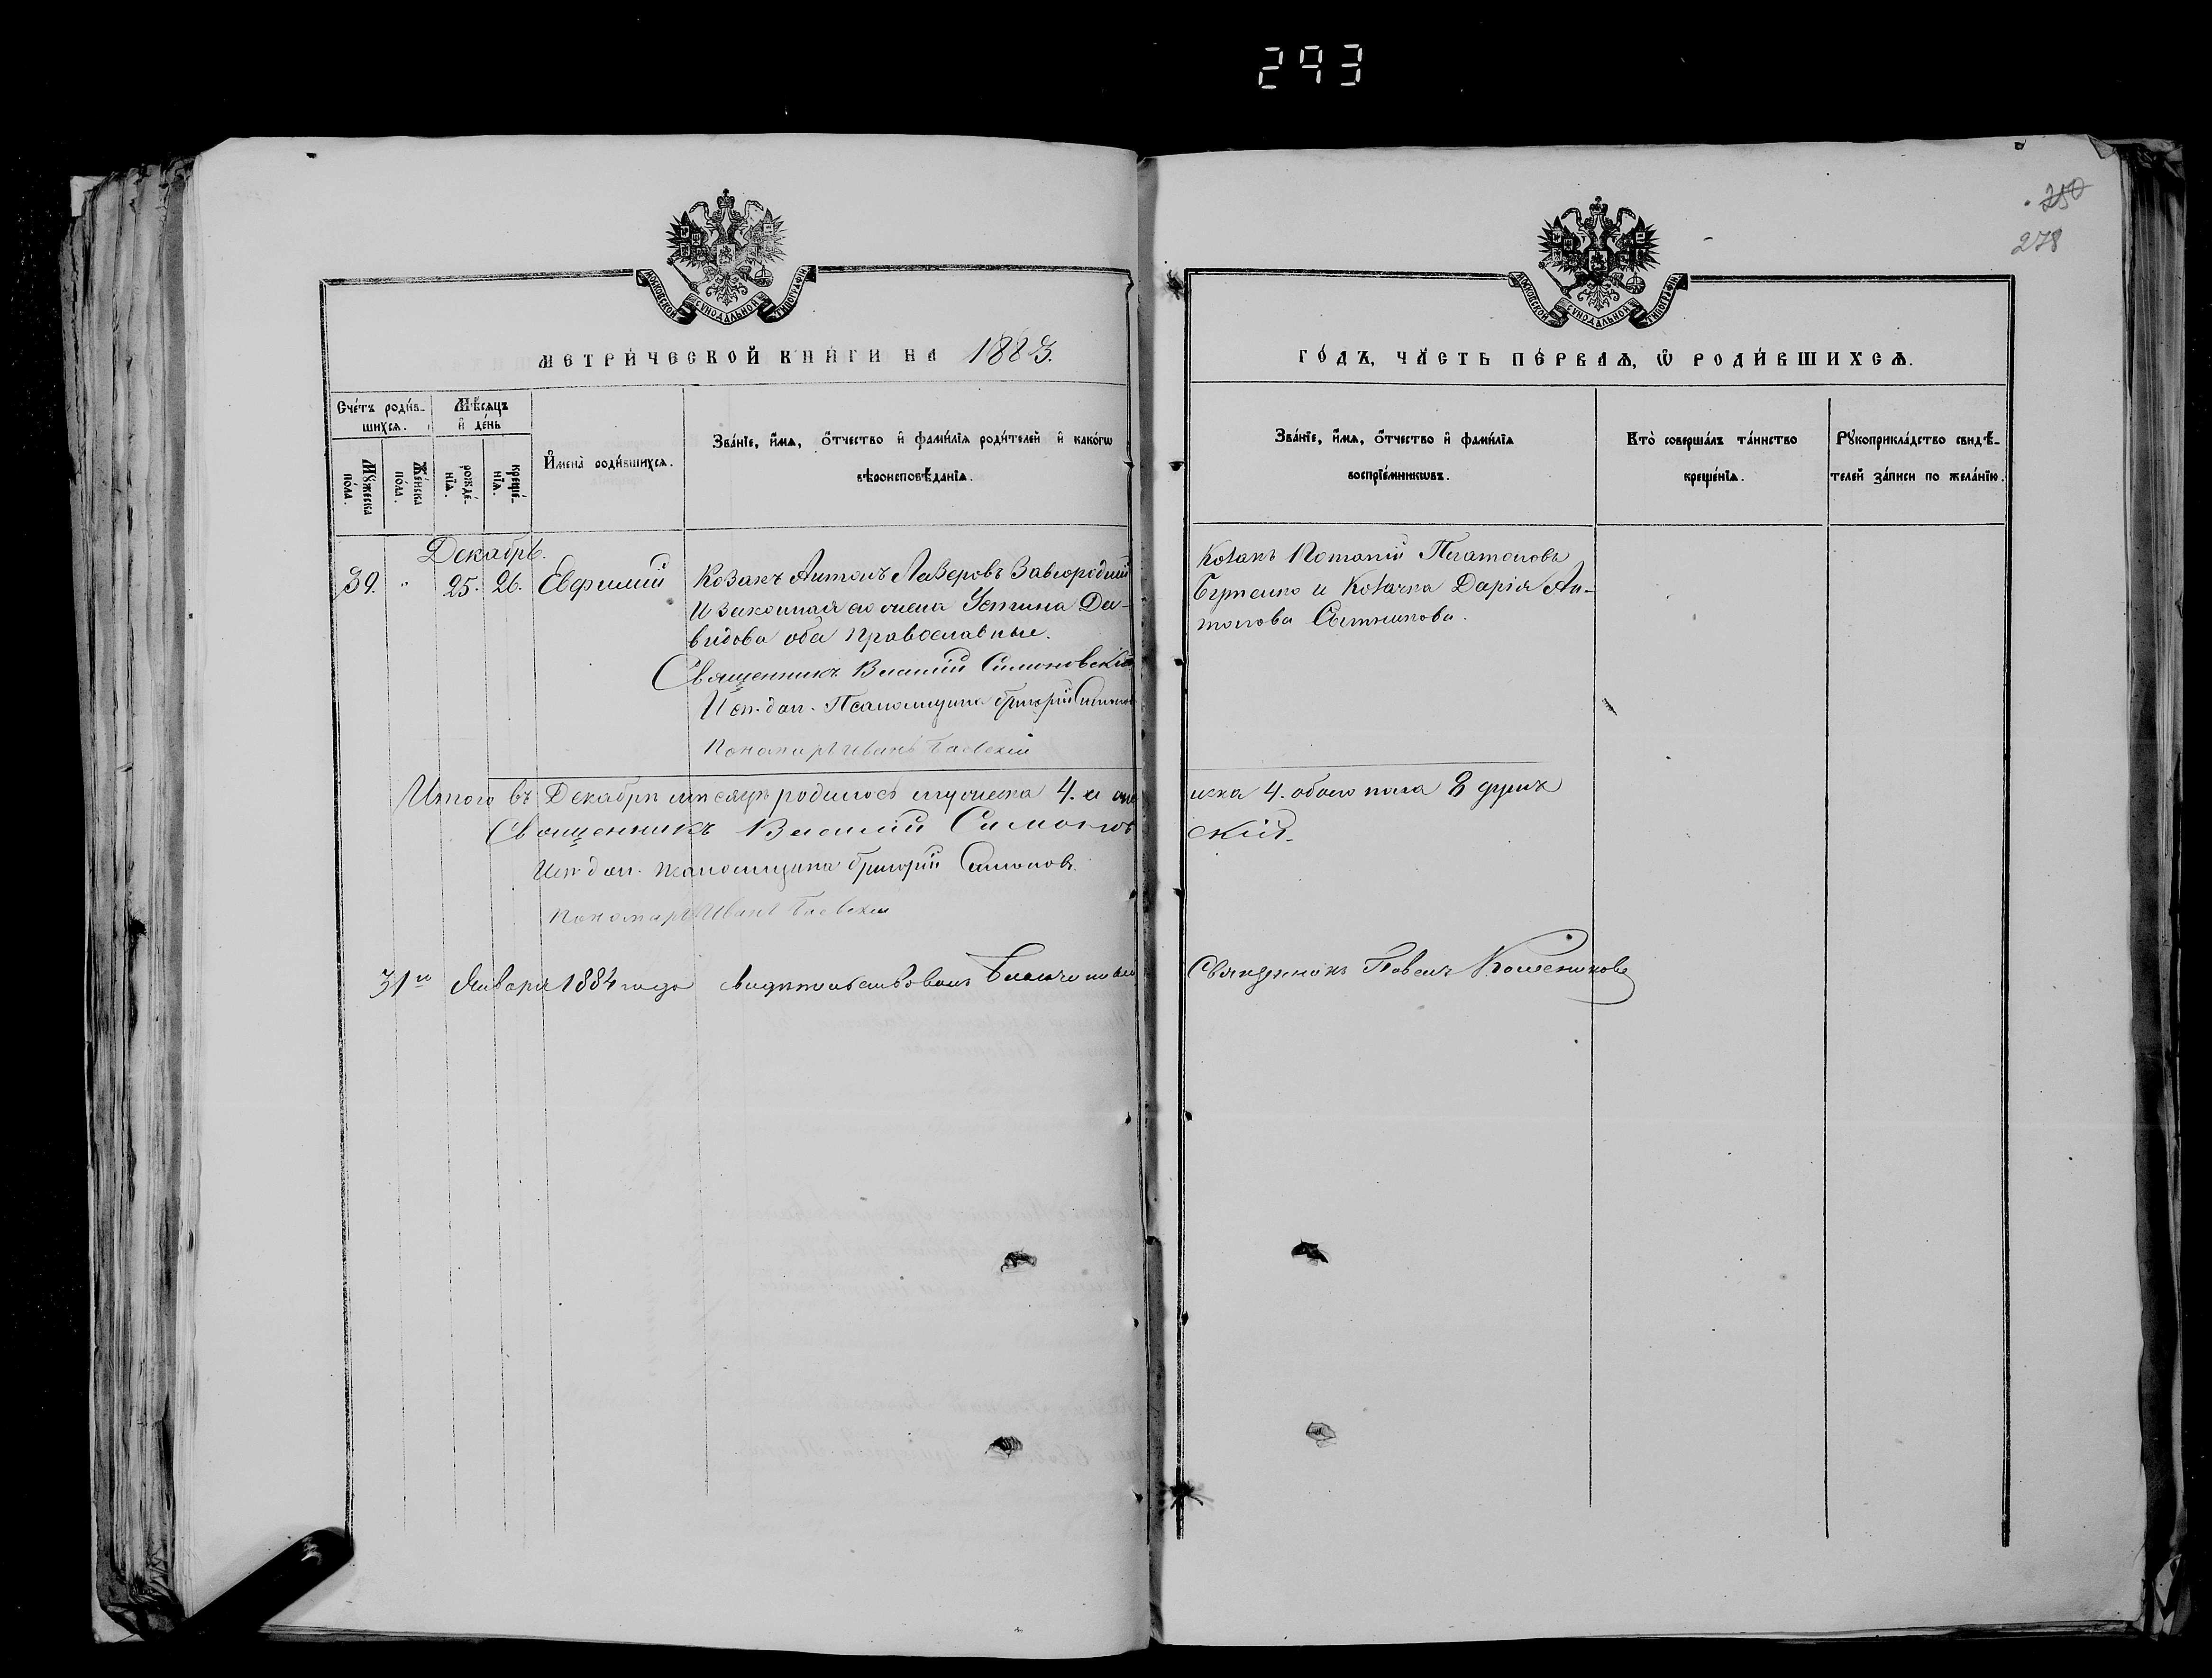 293
250
278
МОСКОВСКОЙ СѴНОДАЛЬНОЙ ТИПОГРАФІИ
МОСКОВСКОЙ СѴНОДАЛЬНОЙ ТИПОГРАФІИ
МЕТРИ́ЧЕСКОЙ КНИ́ГИ НА 1883.
ГО́ДЪ, ЧА́СТЬ ПЕ́РВАѦ, Ѡ РОДИ́ВШИХСѦ.
Сче́тъ роди́в-
шихсѧ.
Мѣ́сѧцъ
и҆ де́нь
Мꙋ́жеска
по́ла.
Же́нска
по́ла.
рожде́-
нїѧ.
креще́-
нїѧ.
И҆мена̀ роди́вшихсѧ.
Зва́нїе, и҆́мѧ, о҆́тчество и҆ фами́лїѧ роди́телей и҆ како́гѡ
вѣроисповѣ́данїѧ.
Зва́нїе, и҆́мѧ, о҆́тчество и҆ фами́лїѧ
воспрїе́мникѡвъ.
Кто̀ соверша́лъ та́инство
креще́нїѧ.
Рꙋкоприкла́дство свидѣ́-
телей за́писи по жела́нїю.
Декабрь.
39. " 25. 26. Евфимий
Козакъ Антонъ Лазеровъ Завгородний
и законная его жена Устина Да-
видова оба православные.
Священникъ Василий Симоновский
Исп. дол. Псаломщика Григорий Симонов
Пономарь Иванъ
Козакъ Потапий Платоновъ
Бутенко и Козачка Дария Ан-
тонова Сытникова.
Итого въ Декабрѣ мѣсяцѣ родилось мужеска 4. и жен
ска 4. обоего пола 8 душъ
Священникъ Василий Симонов
ский.
Исп. дол. псаломщика Григорий Симонов
Пономарь Иванъ
31го Января 1884 года свидѣтельствовалъ Благочинный
Священникъ Павелъ